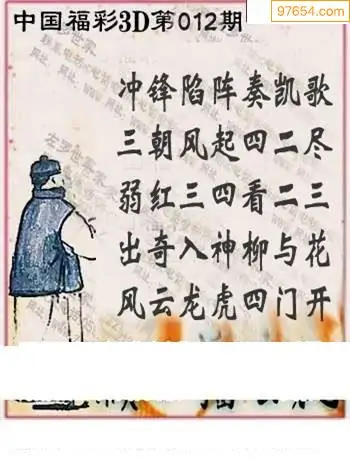 97654.com
中国福彩3D第012期
冲锋陷阵奏凯歌
三朝风起四二尽
弱红三四看二三
出奇入神柳与花
风云龙虎四门开